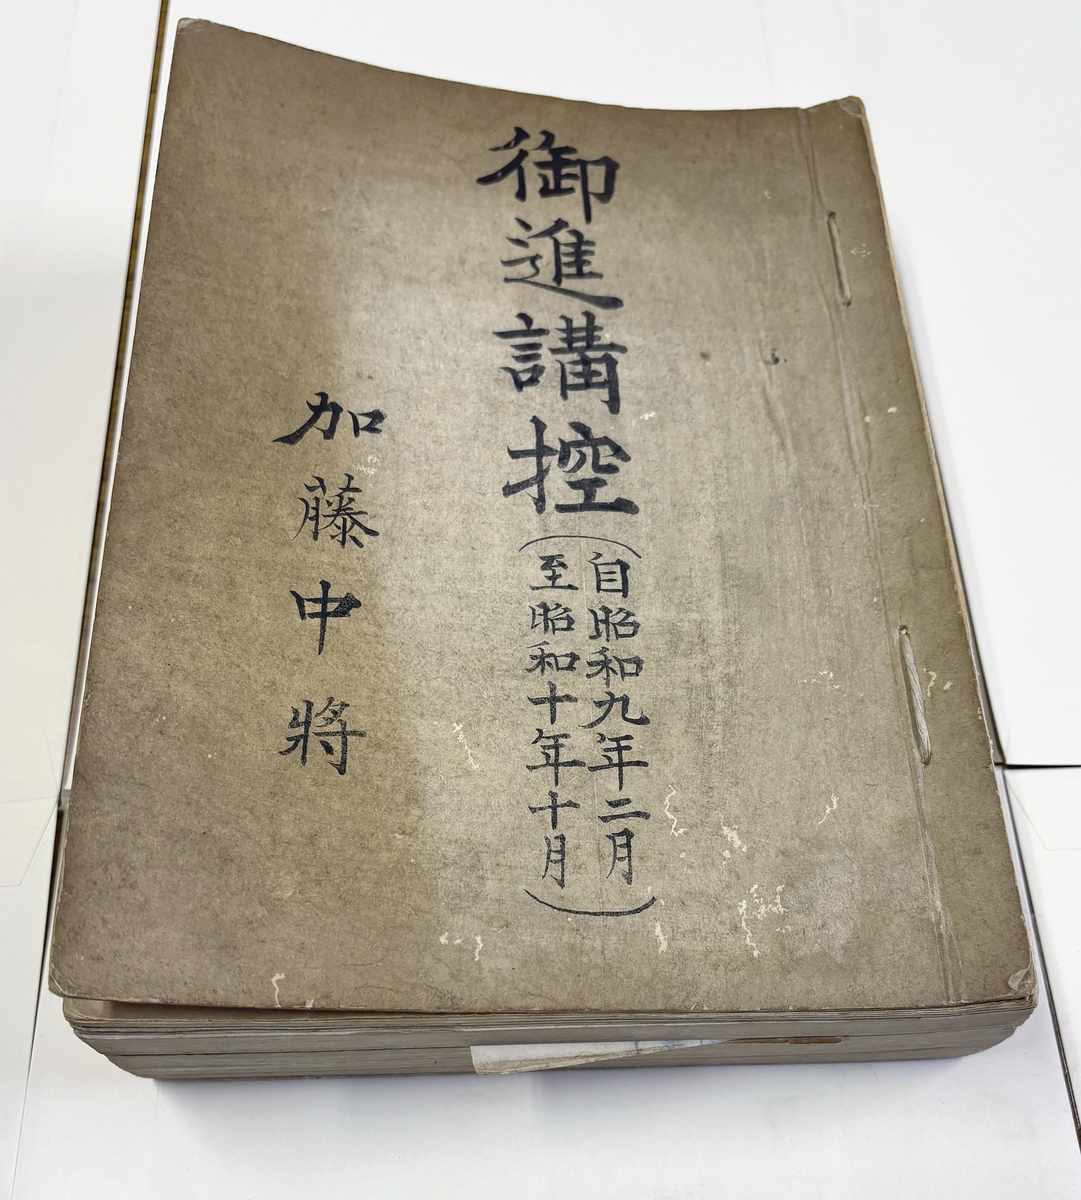 御進講控
(自昭和九年二月
至昭和十年十月)
加藤中將